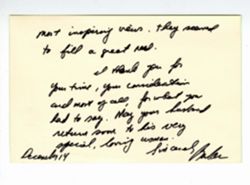 most inspiring views. They seemed
to fill a great need.
I thank you for
your time, your consideration
and most of all, for what you
had to say. May your husband
return soon to his very
special, loving
December 14 Sincerely